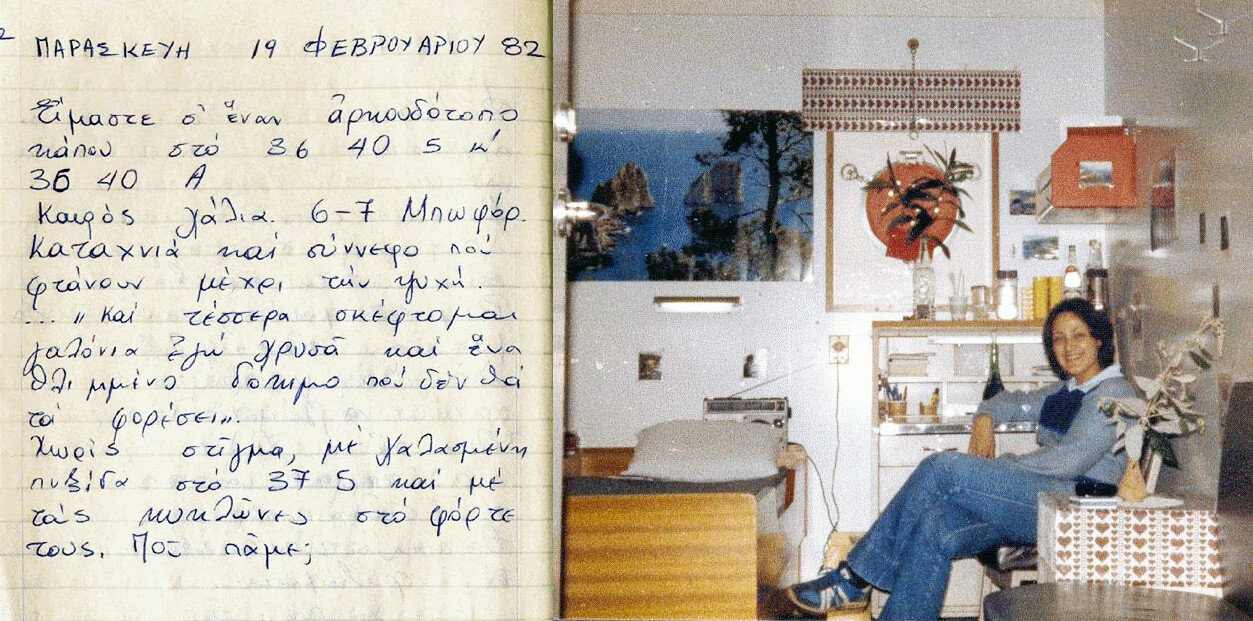 2
ΠΑΡΑΣΚΕΥΗ 19 ΦΕΒΡΟΥΑΡΙΟΥ 82
Εἴμαστε σ' ἕναν ἀρκουδότοπο
κάπου στό 36 40 S κ'
36 40 Α
Καιρός χάλια. 6-7 Μπωφόρ.
Καταχνιά καί σύννεφο πού
φτάνουν μέχρι τήν ψυχή.
... „ Καί τέσσερα σκέφτομαι
γαλόνια ἐγώ χρυσᾶ καί ἕνα
θλιμμένο δόκιμο πού δέν θά
τά φορέσει„.
Χωρίς στῖγμα, μέ χαλασμένη
πυξίδα στό 37 S καί μέ
τούς κυκλῶνες στό φόρτε
τους. Ποῦ πᾶμε;